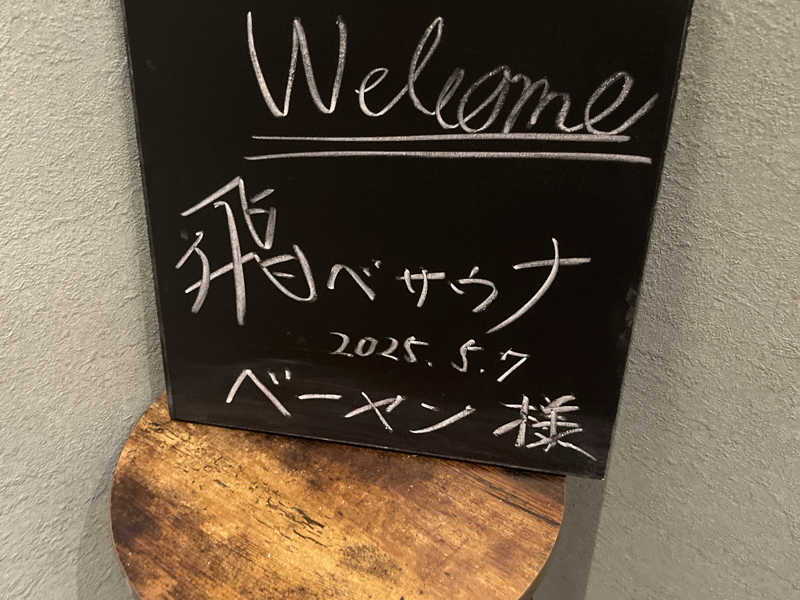 Welcome
飛べサウナ
2025.5.7
ベーヤン様